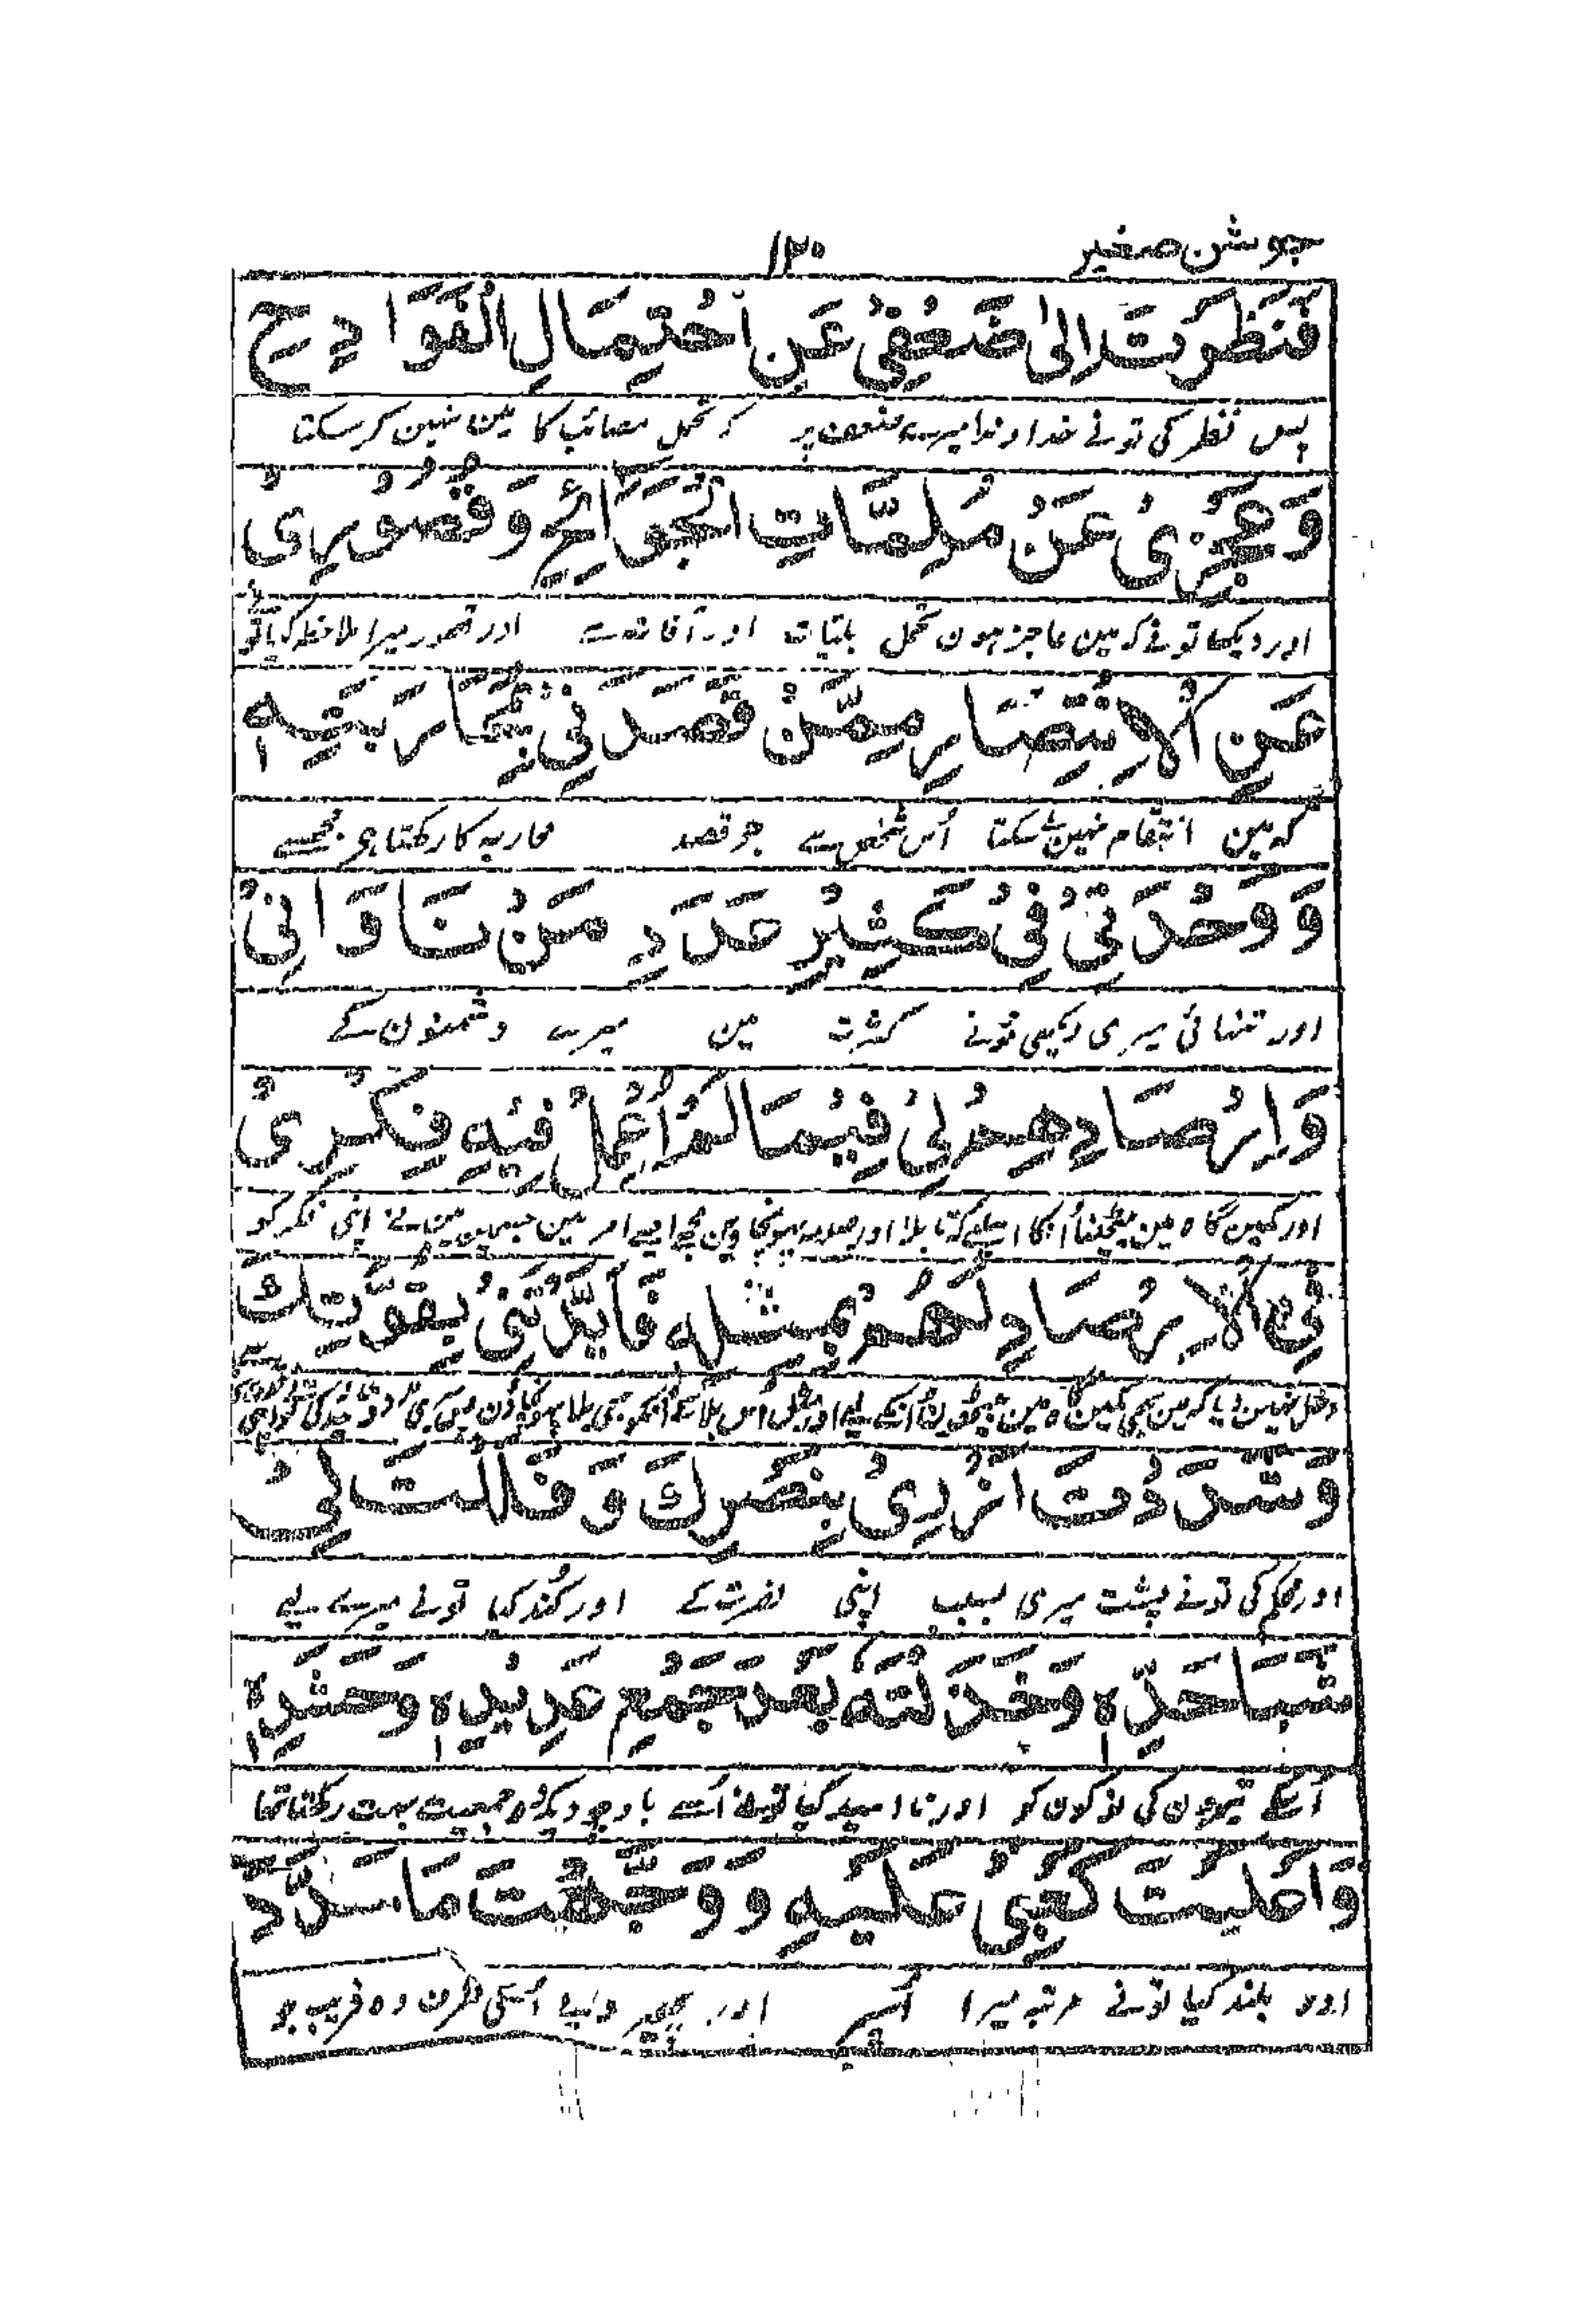 جوشن صغیر ۱۲۰
فَنَظَرْتَ اِلیٰ ضَعْفِیْ عَنِ احْتِمَالِ الْفَوَادِحِ
پس نظر کی تونے خداوندا میرے ضعف پر کہ تحمل مصائب کا مین نہین کر سکتا
وَعَجْزِیْ عَنْ مُلِمَّاتِ الْجَوَائِحِ وَقُصُوْرِیْ
اور دیکھا تونے کہ مین عاجز ہون تحمل بلیات اور آفات سے اور قصور میرا ملاحظہ کیا تو
عَنِ الْاِنْتِصَارِ مِمَّنْ قَصَدَنِیْ بِمُحَارَبَتِهٖ
کہ مین انتقام نہین لے سکتا اُس شخص سے جو قصد محاربہ کا رکھتا ہی مجھسے
وَوَحْدَتِیْ فِیْ کَثِیْرِ عَدَدِ مَنْ نَاوَانِیْ
اور تنہائی میری دیکھی تونے کثرت مین میرے دشمنون کے
وَاِرْصَادِهِمْ لِیْ فِیْمَا لَمْ اُعْمِلْ فِیْهِ فِکْرِیْ
اور کمین گاہ مین بیٹھنا اُنکا اسلیے کہ بلا اور صدمہ پہونچاوین مجھے ایسے امر مین جسمین مینے اپنی فکر کو
فِی الْاِرْصَادِ لَهُمْ بِمِثْلِهٖ فَاَیَّدْتَنِیْ بِقُوَّتِكَ
دخل نہین دیا کہ مین بھی کمین گاہ مین بیٹھون اُنکے لیے اور مثل اُس بلا کے اُنکو بھی بلا پہونچاؤن
وَشَدَدْتَ اَزْرِیْ بِنَصْرِكَ وَفَلَلْتَ لِیْ
اور محکم کی تونے پشت میری بسبب اپنی نصرت کے اور کُند کیا تونے میرے لیے
شَبَا حَدِّهٖ وَخَذَلْتَهٗ بَعْدَ جَمْعِ عَدِیْدِهٖ وَحَشْدِهٖ
اُسکے تیرون کی نوکون کو اور نا امید کیا تونے اُسے باوجودیکہ وہ جمعیت بہت رکھتا تھا
وَاَعْلَیْتَ کَعْبِیْ عَلَیْهِ وَ وَجَّهْتَ مَا سَدَّدَ
اور بلند کیا تونے مرتبہ میرا اُسپر اور پھیر دیے اُسکی طرف وہ فریب جو